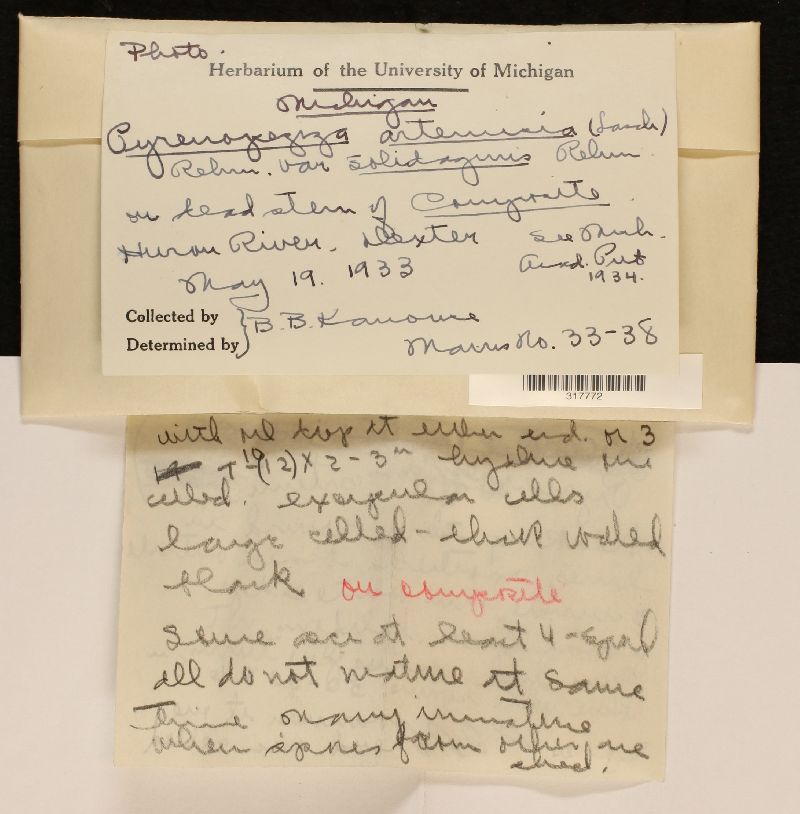 Photo.
Herbarium of the University of Michigan
Michigan
Pyrenopeziza artemisia (Lasch)
Rehm. var solidaginis Rehm
on dead stem of Composite
Huron River. Dexter See Mich.
Acad. Pub
May 19. 1933 1934.
Collected by B. B. Kanouse
Determined by
Mains No. 33-38
317772
with oil drop at either end. or 3
10(12) X 2-3 hyaline one
celled. cells
large celled - thick walled
black on composite
Some asci at least 4-spored
all do not mature at same
Time many immature
when spores from other are
shed.